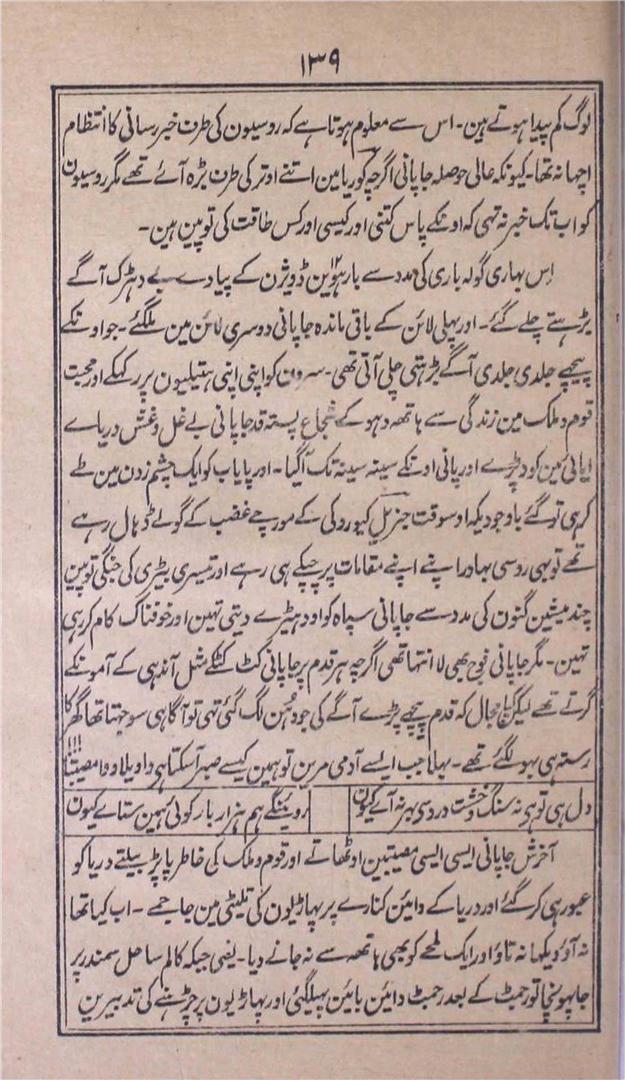 ۱۳۹
لوگ کم پیدا ہوتے ہین۔ اس سے معلوم ہوتا ہے کہ روسیون کی طرف خبر رسانی کا انتظام
اچہا نہ تھا۔ کیونکہ عالی حوصلہ جاپانی اگرچہ کوریا مین اتنے اوتر کی طرف بڑہ آئے تھے مگر روسیون
کو اب تک خبر نہ تہی کہ اونکے پاس کتنی اور کیسی اور کس طاقت کی توپین ہین۔
اِس بہاری گولہ باری کی مدد سے بارہوین ڈویژن کے پیادے بے دہڑک آگے
بڑہتے چلے گئے۔ اور پہلی لائن کے باقی ماندہ جاپانی دوسری لائن مین ملگئے۔ جو اونکے
پیچہے جلدی جلدی آگے بڑہتی چلی آتی تھی۔ سرون کو اپنی اپنی ہتیلیون پر رکہکے اور محبت
قوم و ملک مین زندگی سے ہاتھہ دہو کے شجاع پستہ قد جاپانی بے غل و غش دریاے
ایائی مین کود پڑے اور پانی اونکے سینہ سینہ تک آگیا۔ اور پایاب کو ایک چشم زدن مین طے
کر ہی تو گئے باوجودیکہ اوسوقت جنریل کیوروکی کے مورچے غضب کے گولے ڈہال رہے
تھے تو بہی روسی بہادر اپنے اپنے مقامات پر چپکے ہی رہے اور تیسری بیٹری کی جنگی توپین
چند میشین گنون کی مدد سے جاپانی سپاہ کو اودہیڑے دیتی تہین اور خوفناک کام کر رہی
تہین۔ مگر جاپانی فوج بھی لا انتہا تھی اگرچہ ہر قدم پر جاپانی کٹ کٹکے مثل آندہی کے آمونکے
گرتے تھے لیکن کیا مجال کہ قدم پیچہے پڑے آگے کی جو دہُن لگ گئی تہی تو آگا ہی سوجہتا تھا گھر کا
رستہ ہی بہولگئے تھے۔ بہلا جب ایسے آدمی مرین تو ہمین کیسے صبر آسکتا ہی واویلا وا مصیبتا!!!
دل ہی تو ہی نہ سنگ و خشت درد سی بہر نہ آے کیون
روئینگے ہم ہزار بار کوئی ہمین ستاے کیون
آخرش جاپانی ایسی ایسی مصیبتین اوٹھاتے اور قوم و ملک کی خاطر پاپڑ بیلتے دریا کو
عبور ہی کر گئے اور دریا کے دائین کنارے پر پہاڑیون کی تلیٹی مین جا جمے۔ اب کیا تھا
نہ آؤ دیکہا نہ تاؤ اور ایک لمحے کو بھی ہاتھہ سے نہ جانے دیا۔ یعنی جبکہ کالم ساحل سمندر پر
جا پہونچا تو رجمٹ کے بعد رجمٹ دائین بائین پہیلگئی اور پہاڑیون پر چڑہنے کی تدبیرین